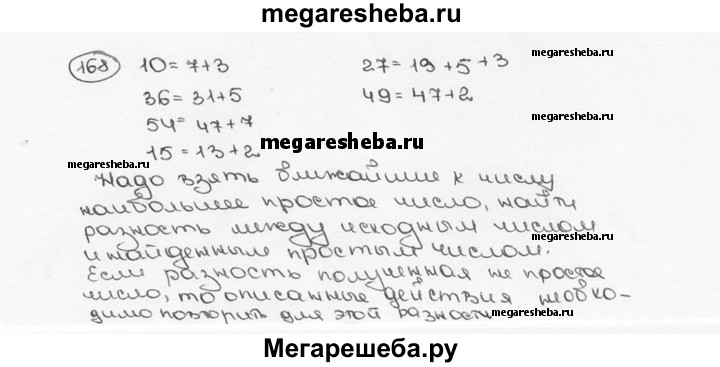 megaresheba.ru
168 10 = 7+3 27 = 19 + 5 + 3
megaresheba.ru
36 = 31+5 49 = 47+2
megaresheba.ru
54 = 47+7
megaresheba.ru
15 = 13+2
megaresheba.ru
Надо взять ближайшее к числу
megaresheba.ru
наибольшее простое число, найти
разность между исходным числом
и найденным простым числом.
Если разность полученная не простое
число, то описанные действия необхо-
димо повторить для этой разности
megaresheba.ru
Мегарешеба.ру